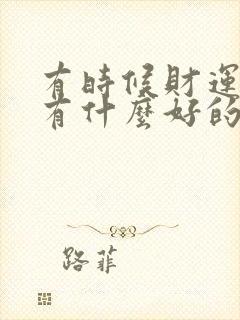 有時候財運
有什麼好的
路菲